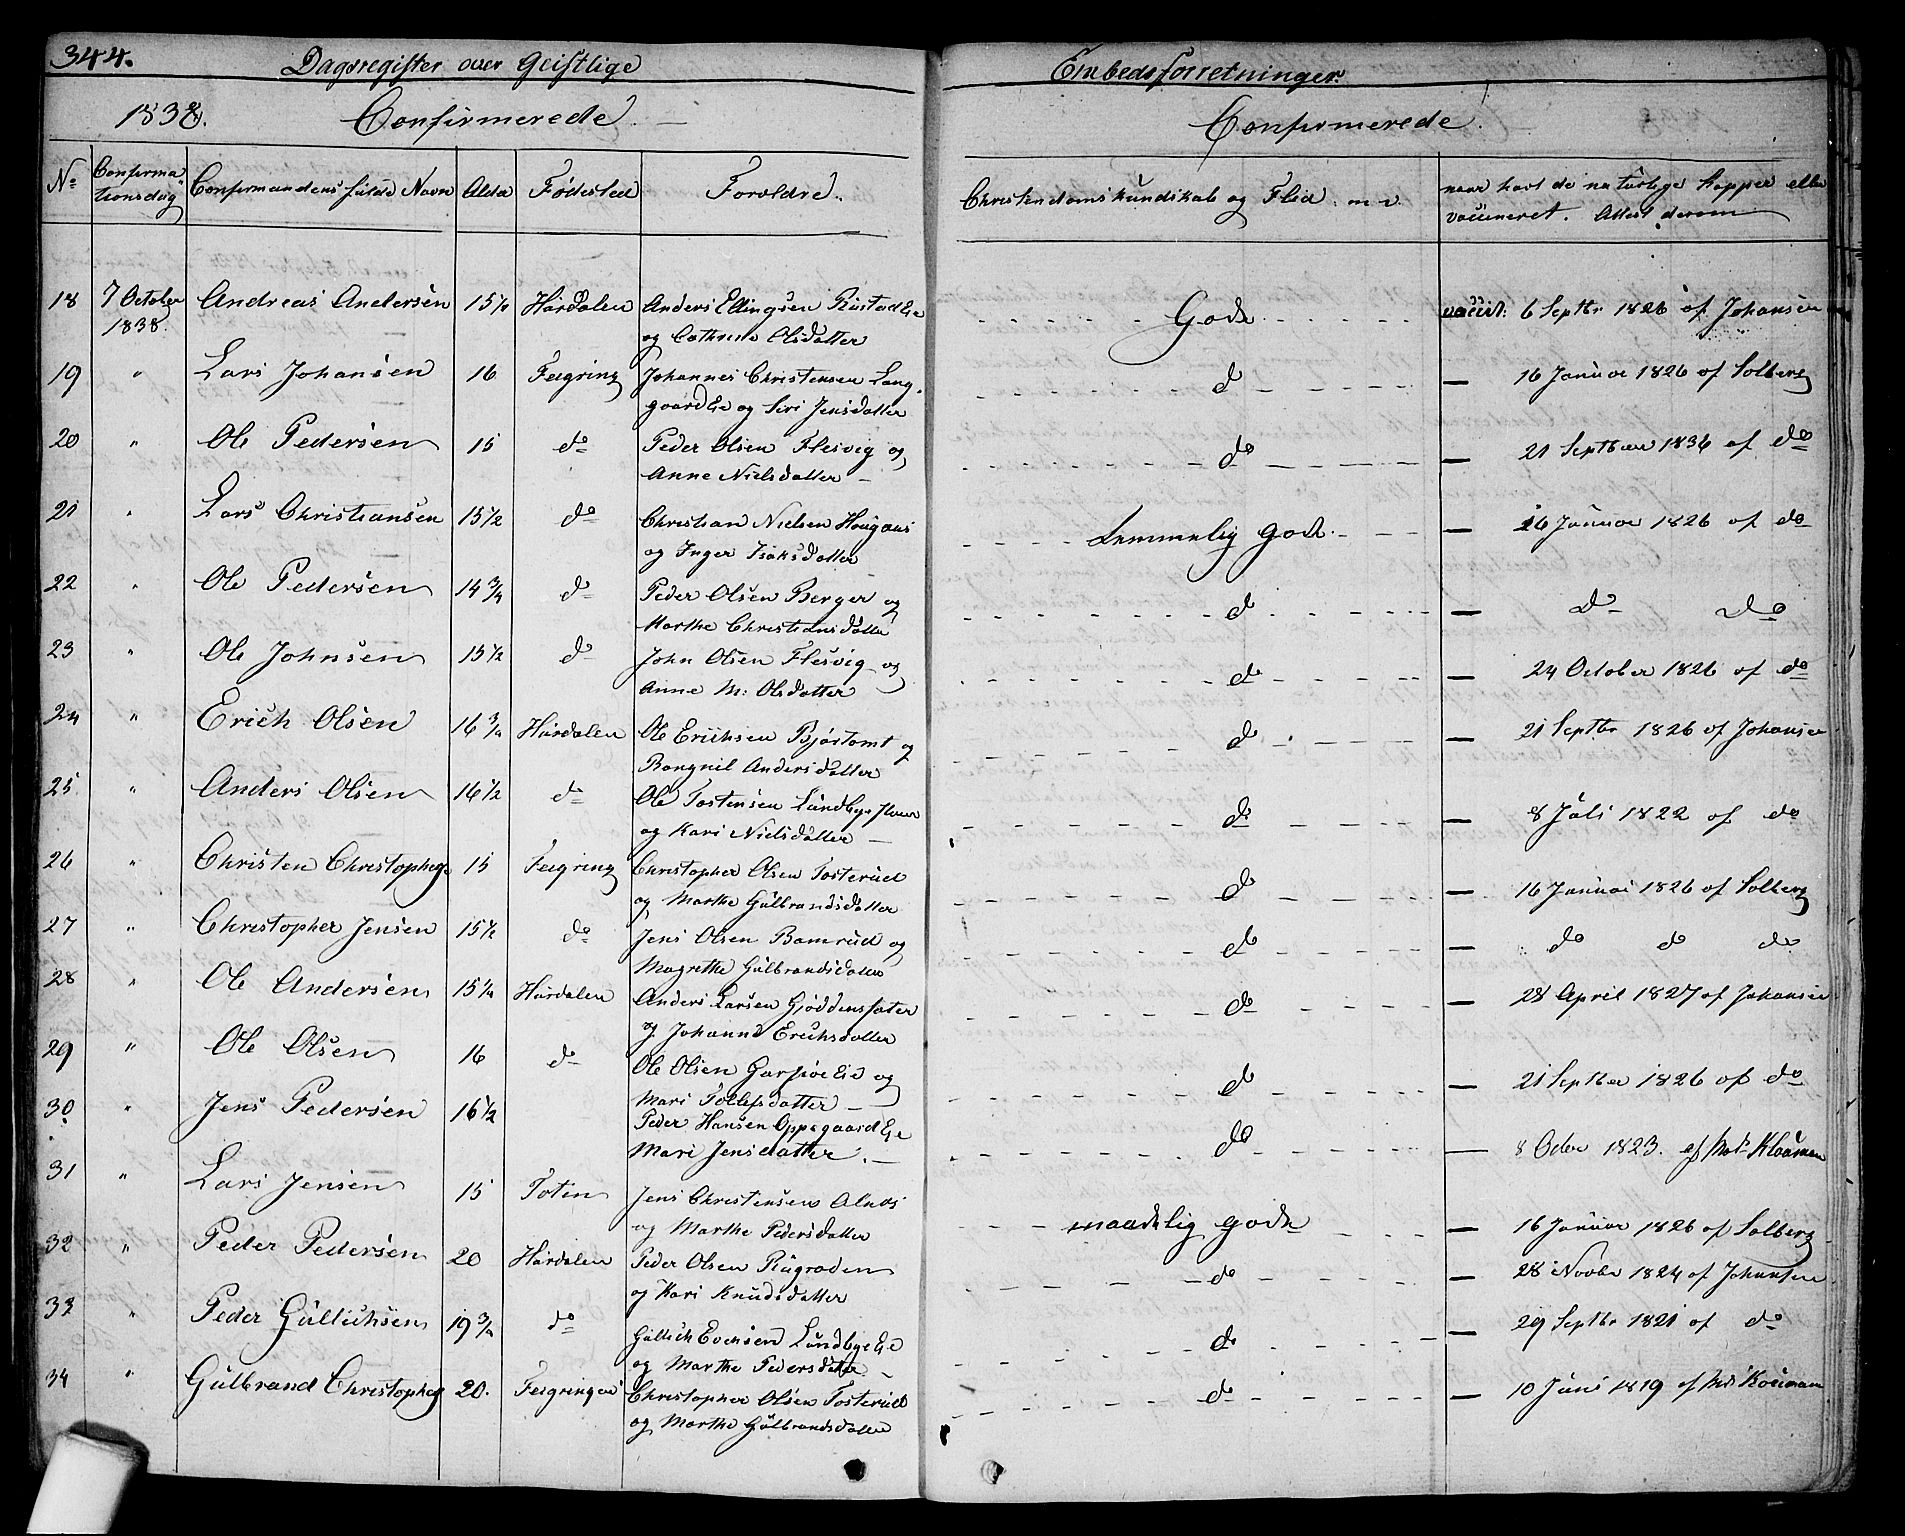 344.
Dagsregister over Geistlige Embedsforretninger.
1838. Confirmerede Confirmerede
No Confirmationsdag Confirmandens fulde Navn Alder Fødested Forældre. Christendomskundskab og Flid m. v. naar havt de naturlige Kopper eller
vaccineret. Attest derom
18 7 October Andreas Andersen 15 1/4 Hurdalen Anders Ellingsen Rustad Eie Gode vaccit: 6 Septbr 1826 af Johansen
1838. og Cathrine Olsdatter
19 " Lars Johansen 16 Feigring Johannes Christensen Lang- do — 16 Januar 1826 af Solberg
gaard Eie og Siri Jensdatter
20 " Ole Pedersen 15 do Peder Olsen Flesvig og do — 21 Septbr 1836 af do
Anne Nielsdatter —
21 " Lars Christiansen 15 1/2 do Christian Nielsen Hougnæs Temmelig gode — 16 Januar 1826 af do
og Inger Isaksdatter
22 " Ole Pedersen 14 3/4 do Peder Olsen Berger og do — do do
Marthe Christiansdatter
23 " Ole Johnsen 15 1/2 do John Olsen Flesvig og do — 24 October 1826 af do
Anne M: Olsdatter
24 " Erich Olsen 16 3/4 Hurdalen Ole Erichsen Bjørtomt og do — 21 Septbr 1826 af Johansen
Rangnil Andersdatter
25 " Anders Olsen 16 1/2 do Ole Tostensen Lundbye do — 8 Juli 1822 af do
og Kari Nielsdatter —
26 " Christen Christophes 15 Feigring Christopher Olsen Tosterud do — 16 Januar 1826 af Solberg
og Marthe Gulbrandsdatter
27 " Christopher Jensen 15 1/2 do Jens Olsen Bamrud og do — do do do
Magrethe Gulbrandsdatter
28 " Ole Andersen 15 1/4 Hurdalen Anders Larsen Gjøddensæter do — 28 April 1827 af Johansen
og Johanne Erichsdatter
29 " Ole Olsen 16 do Ole Olsen Garsjøe Eie og do — 21 Septber 1826 af do
Mari Tollefsdatter —
30 " Jens Pedersen 16 1/2 Peder Hansen Oppegaard Eie do — 8 Octbr 1823. af
Mari Jensdatter. —
31 " Lars Jensen 15 Toten Jens Christensen Alnæs maadelig gode — 16 Januar 1826 af Solberg
og Marthe Pedersdatter
32 " Peder Pedersen 20 Hurdalen Peder Olsen Rugraden do — 28 Novbr 1824 af Johansen
og Kari Knudsdatter
33 " Peder Gullichsen 19 3/4 do Gullich Evensen Lundbye Eie do — 29 Septbr 1821 af do
og Marthe Pedersdatter —
34 " Gulbrand Christophes 20. Feigringen Christopher Olsen Tosterud do — 10 Juni 1819 af
og Marthe Gulbrandsdatter